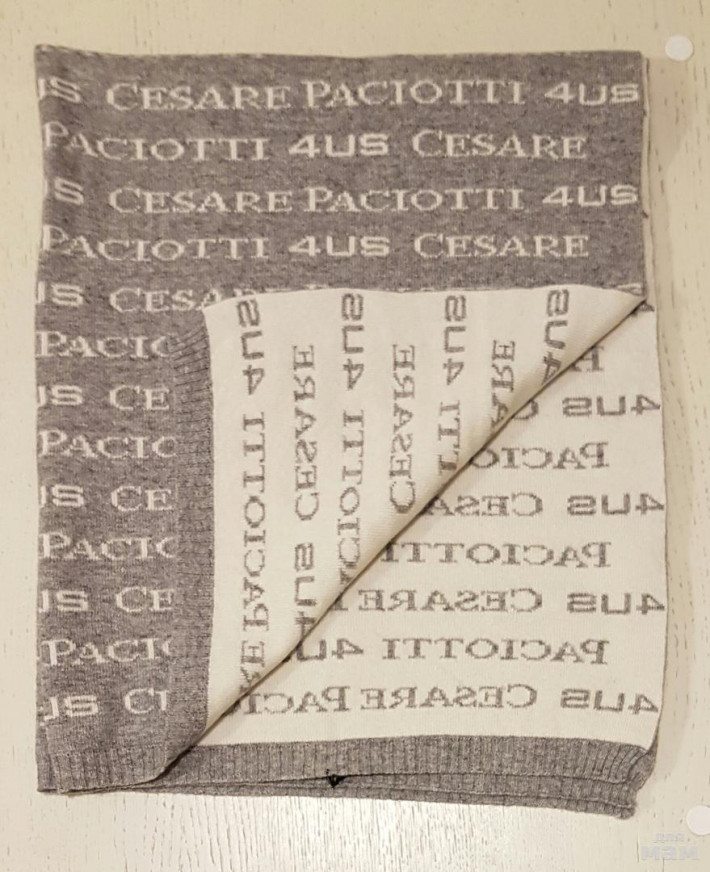 US CESARE PACIOTTI 4US
PACIOTTI 4US CESARE
US CESARE PACIOTTI 4US
PACIOTTI 4US CESARE
US CESA
PACIO
US CE
PACIO
US CE
PACIO
US CE
PACIO
US CE
4US
4US
4US
4US
RE PACIOTTI
4US CESARE
PACIOTTI
CESARE
TTI
ARE
4US
PACIO
CESARE 4US
PACIOTTI
CESARE 4US
PACIOTTI 4U
CESARE PACI 4US